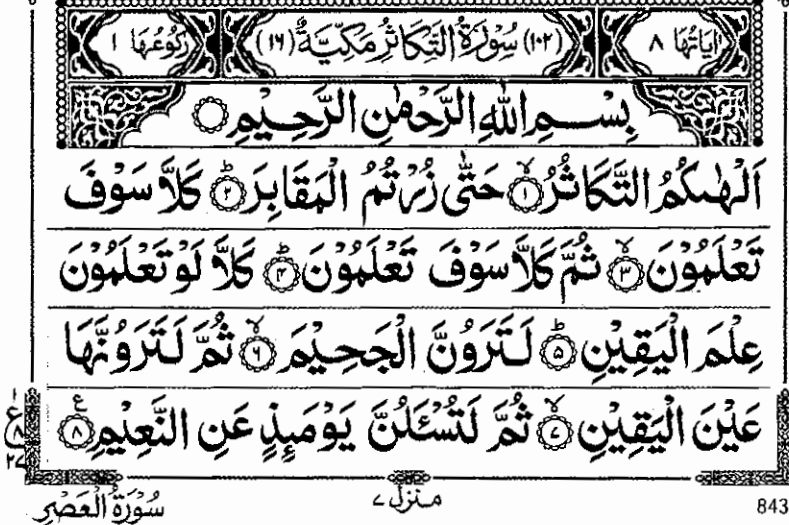 اٰيَاتُهَا ٨ (١٠٢) سُوْرَةُ التَّكَاثُرِ مَكِّيَّةٌ (١٦) رُكُوْعُهَا ١
بِسْمِ اللّٰهِ الرَّحْمٰنِ الرَّحِيْمِ ۝
اَلْهٰىكُمُ التَّكَاثُرُ ۙ‏﴿١﴾ حَتّٰى زُرْتُمُ الْمَقَابِرَ ؕ‏﴿٢﴾ كَلَّا سَوْفَ
تَعْلَمُوْنَ ۙ‏﴿٣﴾ ثُمَّ كَلَّا سَوْفَ تَعْلَمُوْنَ ؕ‏﴿٤﴾ كَلَّا لَوْ تَعْلَمُوْنَ
عِلْمَ الْيَقِيْنِ ؕ‏﴿٥﴾ لَتَرَوُنَّ الْجَحِيْمَ ۙ‏﴿٦﴾ ثُمَّ لَتَرَوُنَّهَا
عَيْنَ الْيَقِيْنِ ۙ‏﴿٧﴾ ثُمَّ لَتُسْـَٔلُنَّ يَوْمَىِٕذٍ عَنِ النَّعِيْمِ ﴿٨﴾ ع
١
ع
٨
٢٧
سُوْرَةُ الْعَصْرِ منزل ٧ 843